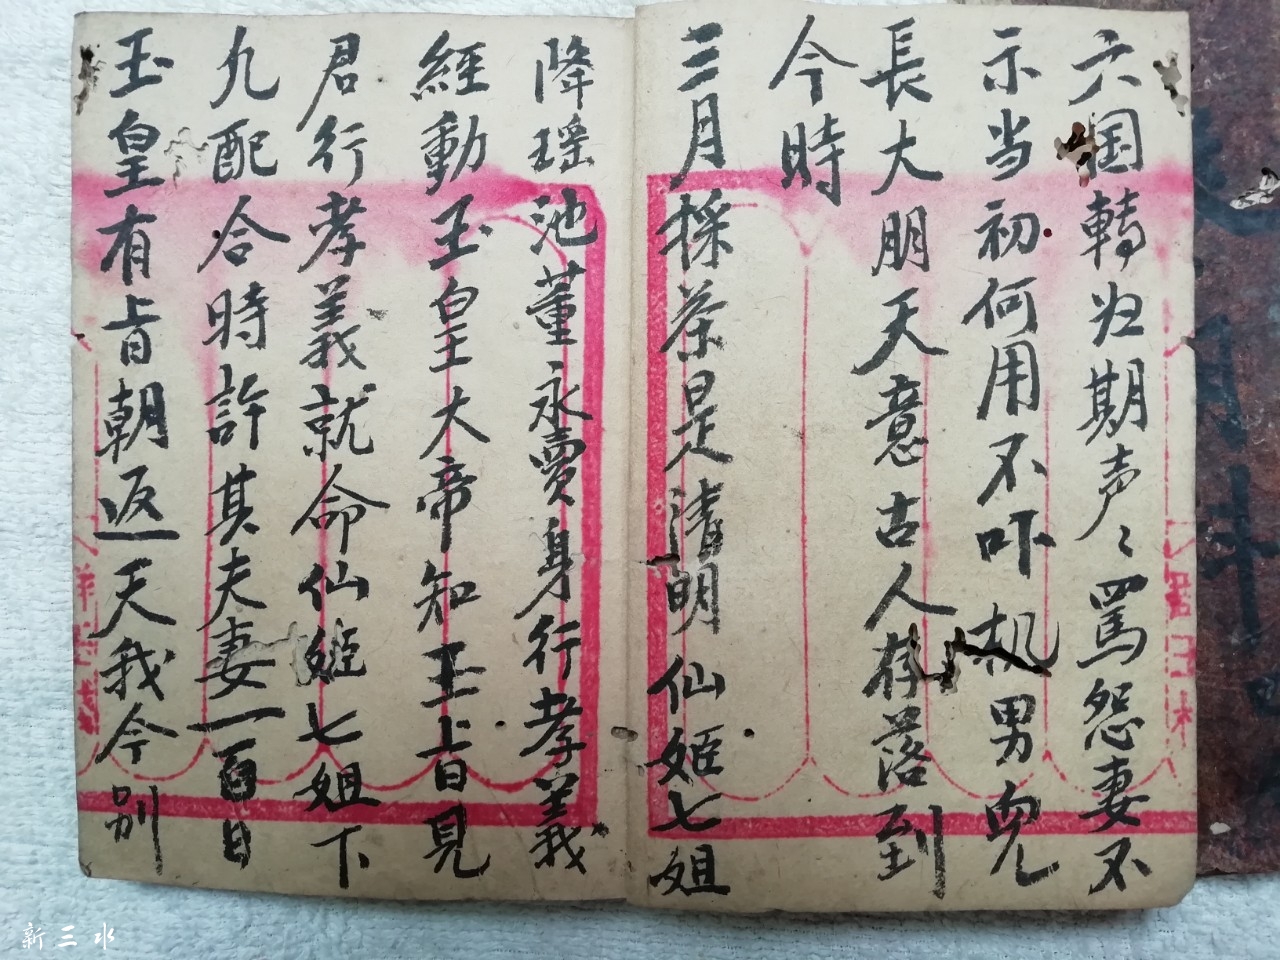 六国轉归期声〻罵怨妻不
示当初何用不吓机男兒
長大朋天意古人存落到
今時
三月採茶是清明仙姬七姐
降瑶池董永賣身行孝義
經動玉皇大帝知玉旨見
君行孝義就命仙姬七姐下
九配合時許其夫妻一百日
玉皇有旨朝返天我今别
新三水